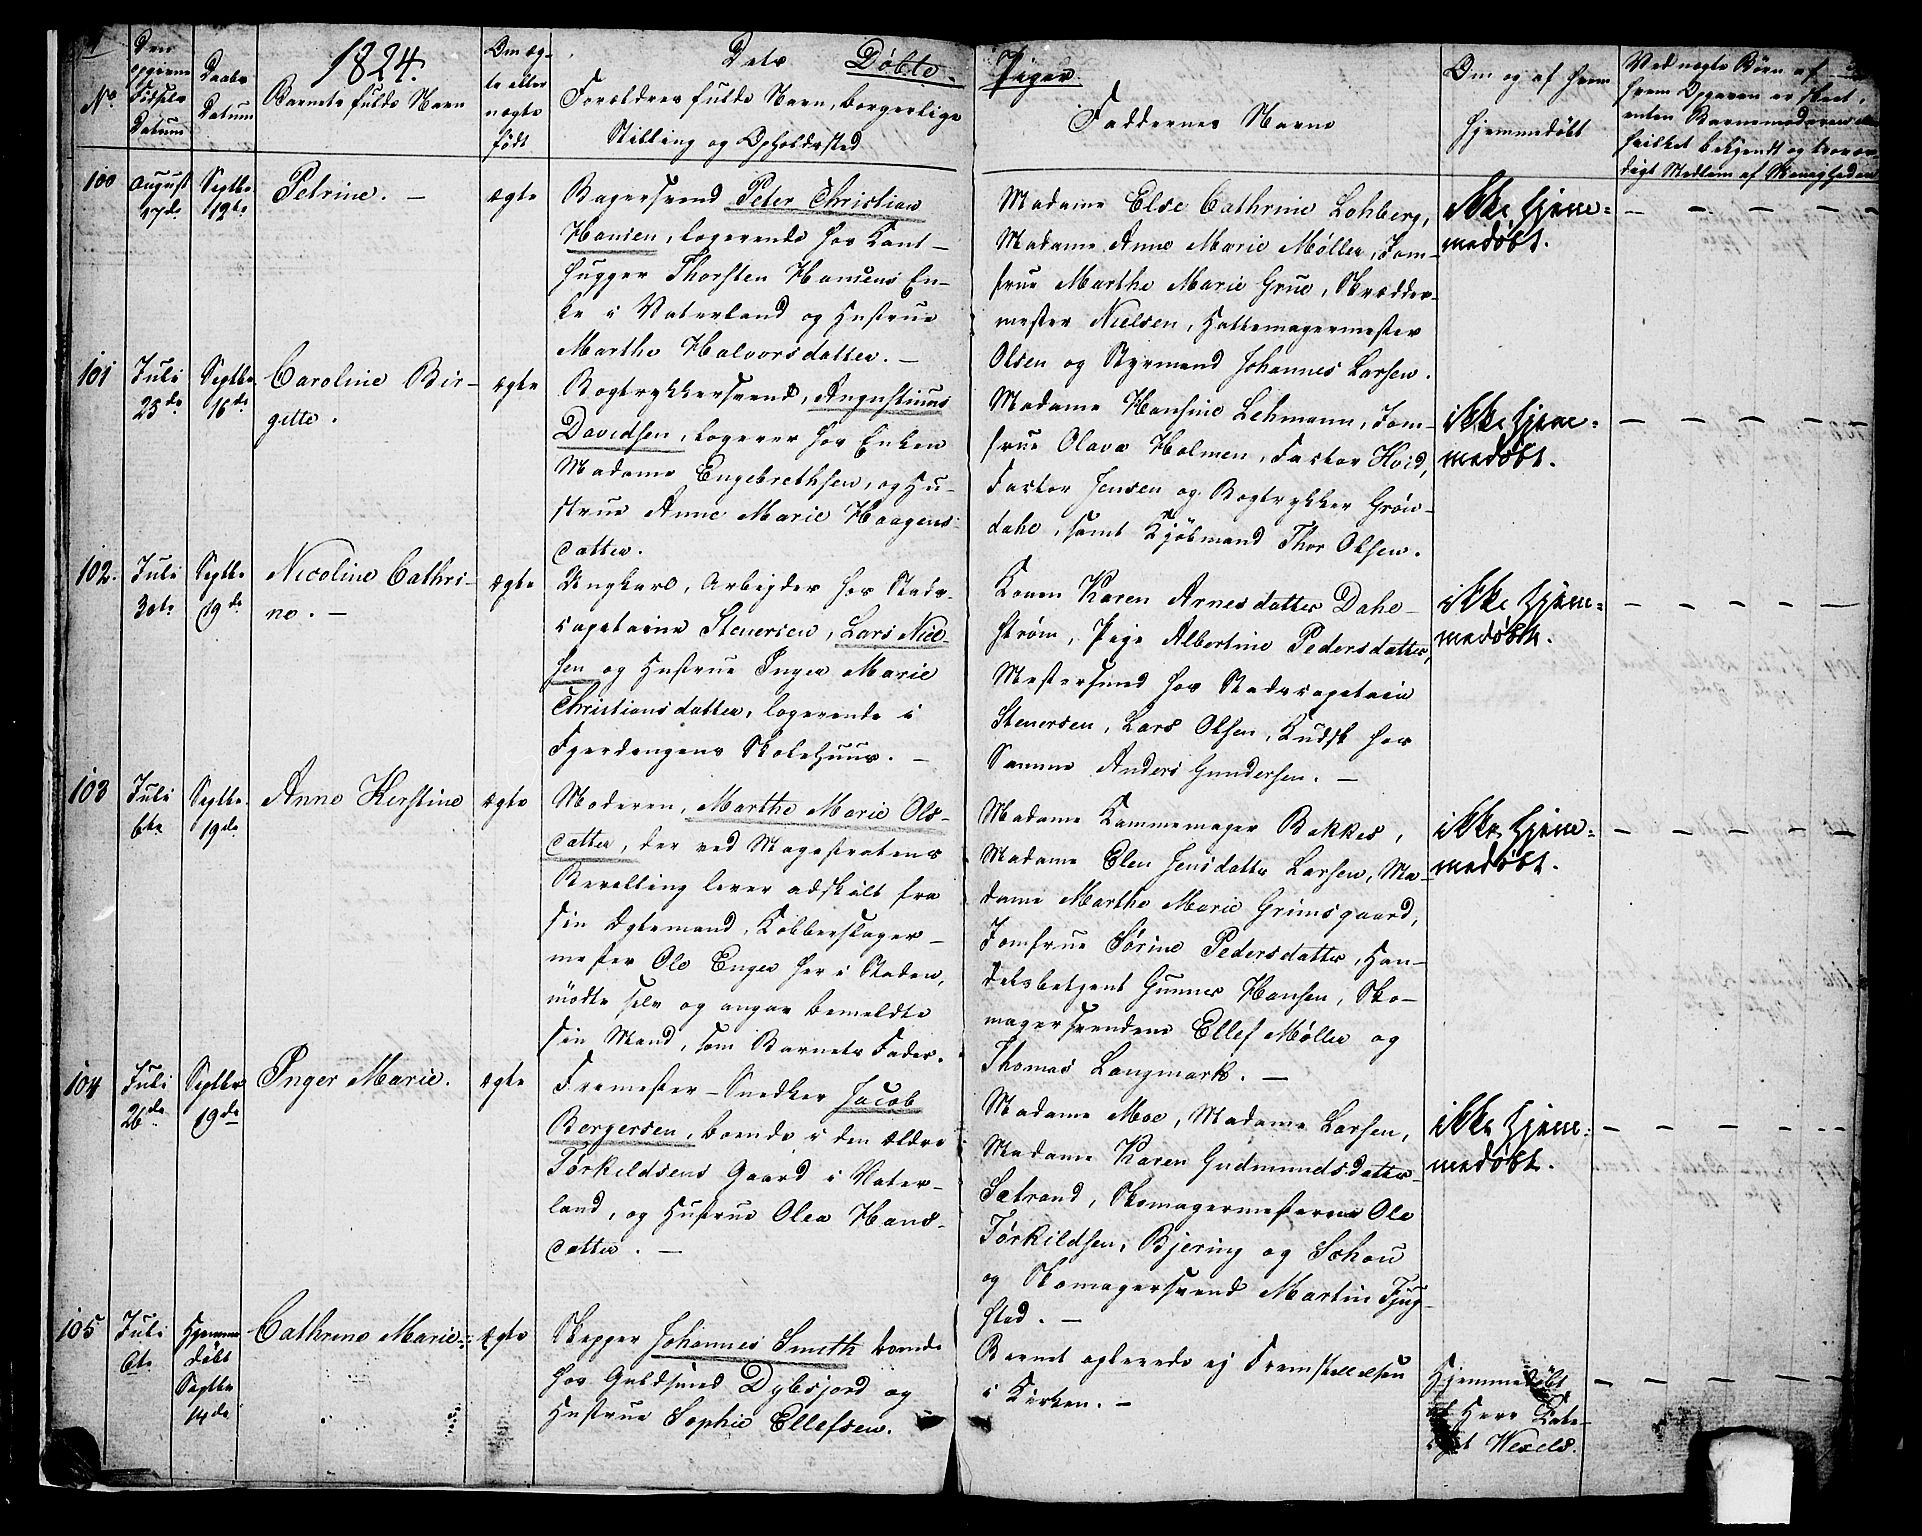 1824.
Dets Døbte Piger
No
Den opgivne Fødsels Datum
Daabs Datum
Barnets fulde Navn
Om ægte eller uægte født
Forældres fulde Navn, borgerlige
Stilling og Opholdssted
Faddernes Navne
Om og af hvem
hjemmedøbt
Ved uægte Børn af
hvem Opgaven er skeet,
enten Barnemoderen eller
hvilket bekjendt og troevær-
digt Medlem af Menigheden
100
August
17de
Septbr
12te
Petrine. —
ægte
Bagersvend Peter Christian
Hansen, logerende hos Kant-
hugger Thorsten Hansens En-
ke i Vaterland og Hustrue
Marthe Halvorsdatter. —
Madame Else Cathrine Lohberg,
Madame Anne Marie Møller, Jom-
frue Marthe Marie Grue, Skrædder-
mester Nielsen, Hattemagermester
Olsen og Styrmand Johannes Larsen.
ikke hjem-
medøbt.
101
Juli
25de
Septbr
16de
Caroline Bir-
gitte.
ægte
Bogtrykkersvend, Augustinus
Davidsen, logerer hos Enken
Madame Engebrethsen, og Hu-
strue Anne Marie Haagens-
datter.
Madame Hansine Lehmann, Jom-
frue Olava Holmen, Factor Hvid,
Factor Jensen og Bogtrykker Grøn-
dahl, samt Kjøbmand Thor Olsen.
ikke hjem-
medøbt.
102.
Juli
30te
Septbr
19de
Nicoline Cathri-
ne. —
ægte
Ungkarl, Arbejder hos Stads-
capitaine Stenersen, Lars Niel-
sen og Hustrue Inger Marie
Christiansdatter, logerende i
Fjerdingens Skolehuus. —
Konen Karen Arnesdatter Dahl-
strøm, Pige Albertine Pedersdatter,
Mestersvend hos Stadscapitain
Stenersen, Lars Olsen, Kudsk hos
Samme Anders Gundersen. —
ikke hjem-
medøbt.
103
Juli
6te
Septbr
19de
Anne Kerstine
ægte
Moderen, Marthe Marie Ols-
datter, der ved Magistratens
Bevilling lever adskilt fra
sin Ægtemand, Kobberslager-
mester Ole Enger her i Staden,
mødte selv og angav bemeldte
sin Mand, som Barnets Fader.
Madame Kammemager Bakkes,
Madame Elen Jensdatter Larsen, Ma-
dame Marthe Marie Grimsgaard,
Jomfrue Sørine Pedersdatter, Han-
delsbetjent Gunner Hansen, Sko-
magersvendene Ellef Møller og
Thomas Langmark. —
ikke hjem-
medøbt.
104
Juli
26de
Septbr
19de
Inger Marie.
ægte
Fremester-Snedker Jacob
Borgersen, boende i den ældre
Tørkildsens Gaard i Vater-
land, og Hustrue Olea Hans-
datter. —
Madame Moe, Madame Larsen,
Madame Karen Gudmundsdatter
Sætrand, Skomagermesterne Ole
Tørkildsen, Bjering og Schou
og Skomagersvend Martin Fjug-
stad. —
ikke hjem-
medøbt.
105
Juli
6te
Hjemme
døbt
Septbr
14de
Cathrine Marie.
ægte
Skipper Johannes Smith boende
hos Guldsmed Dybsjord og
Hustrue Sophie Ellefsen.
Barnet oplevede ej Fremstillelsen
i Kirken. —
Hjemmedøbt
af Herr Cate-
chet Wexels.